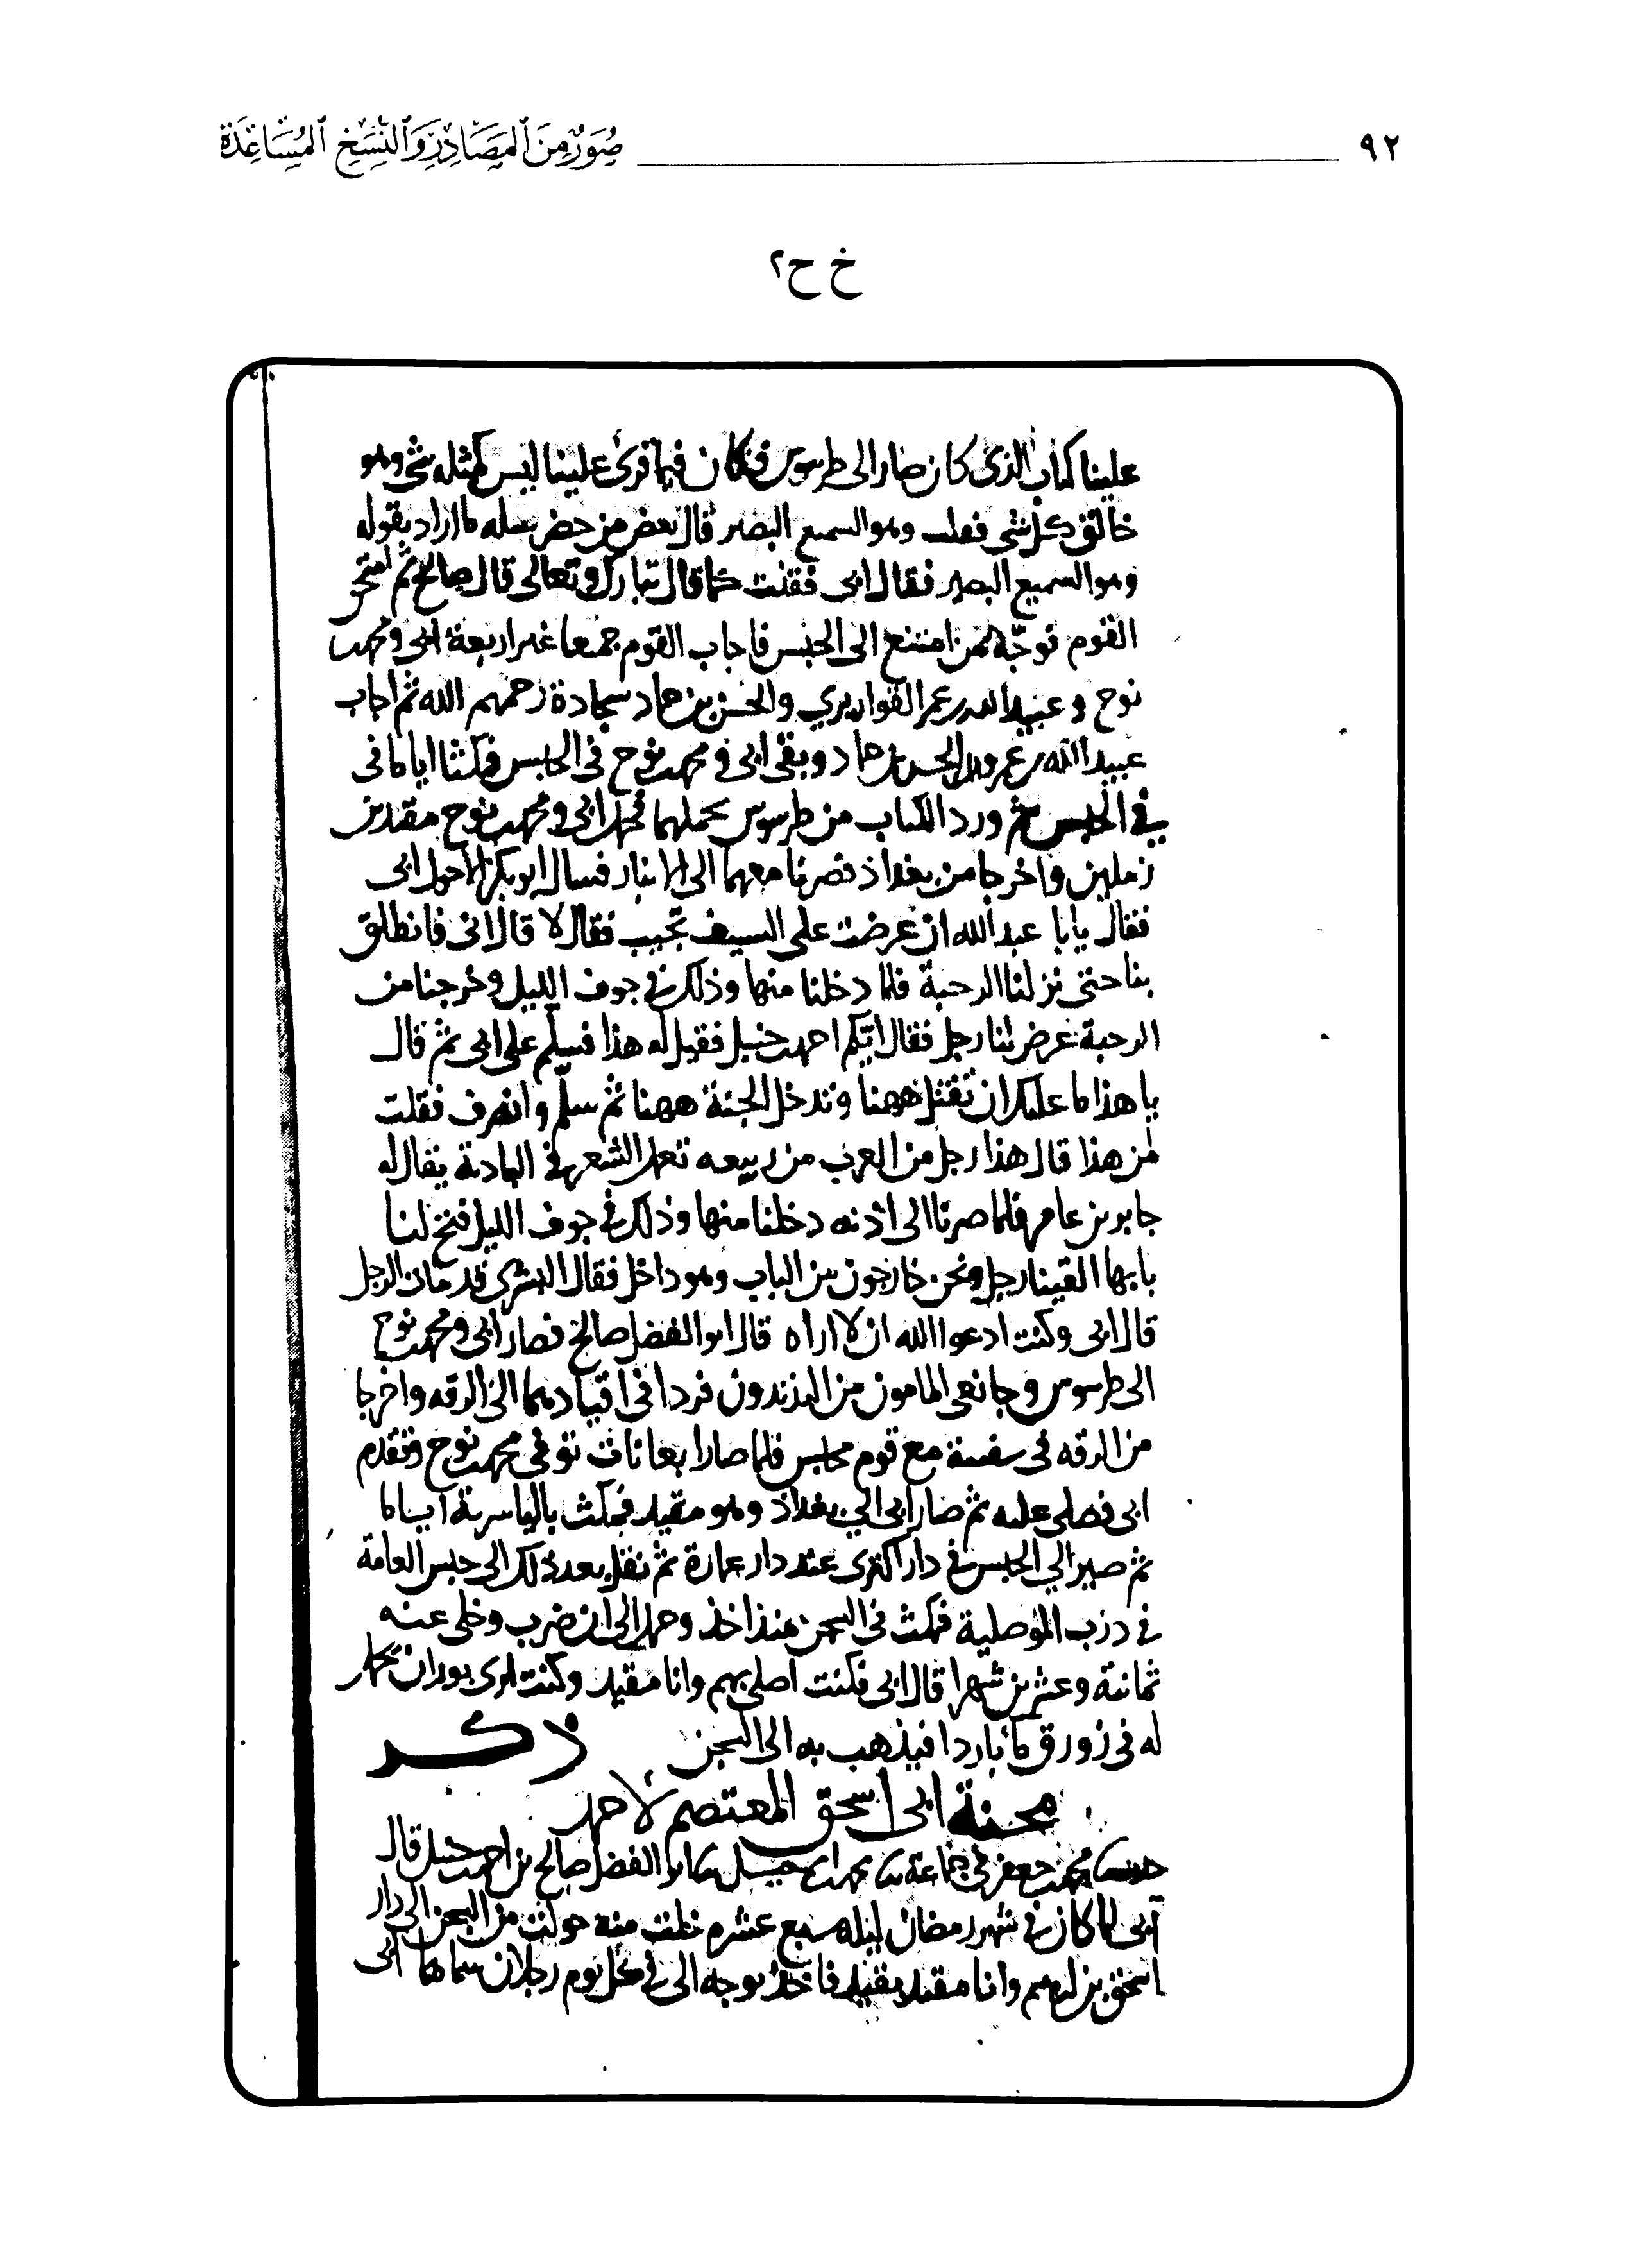 ٩٢ صُوَرٌ مِنَ ٱلمَصَادِرِ وَٱلنُّسَخِ ٱلمُسَاعِدَة
خ ح٢
علينا كتاب الذى كان صار الى طرسوس فكان فيما قرى علينا ليس كمثله شى وهو
خالق كل شى فقلت وهو السميع البصير قال بعض من حضر سله ما اراد بقوله
وهو السميع البصير فقال ابى فقلت كما قال تبارك وتعالى قال صالح ثم امتحن
القوم فوجّه بمن امتنع الى الحبس فاجاب القوم جميعا غير اربعة ابى ومحمد بن
نوح و عبيد الله بن عمر القواريري والحسن بن حماد سجادة رحمهم الله ثم اجاب
عبيد الله بن عمر والحسن بن حماد وبقى ابى و محمد بن نوح فى الحبس فمكثا اياما فى
في الحبس ثم ورد الكتاب من طرسوس بحملهما فحمل ابى ومحمد بن نوح مقيدين
زميلين واخرجا من بغداذ فصرنا معهما الى الانبار فسال ابو بكر الاحول ابى
فقال يا با عبد الله ان عرضت على السيف تجيب فقال لا قال ابى فانطلق
بنا حتى نزلنا الرحبة فلما دخلنا منها وذلك في جوف الليل وخرجنا من
الرحبة عرض لنا رجل فقال ايّكم احمد بن حنبل فقيل له هذا فسلّم على ابى ثم قال
يا هذا ما عليك ان تقتل ههنا وتدخل الجنة ههنا ثم سلّم وانصرف فقلت
من هذا قال هذا رجل من العرب من ربيعه يعمل الشعر في البادية يقال له
جابر بن عامر فلما صرنا الى اذنه دخلنا منها وذلك في جوف الليل فتح لنا
بابها القينا رجل ونحن خارجون من الباب وهو داخل فقال البشرى قد مات الرجل
قال ابى وكنت ادعوا الله ان لا اراه قال ابو الفضل صالح فصار ابى ومحمد بن نوح
الى طرسوس وجا نعى المامون من البذندون فردا فى اقيادهما الى الرقه واخرجا
من الرقه فى سفينة مع قوم محابس فلما صارا بعانات توفى محمد بن نوح وتقدم
ابى فصلى عليه ثم صار ابى الى بغداذ وهو مقيد فمكث بالياسرية اياما
ثم صير الي الحبس في دار اكترى عند دار عمارة ثم نقل بعد ذلك الى حبس العامة
في درب الموصلية فمكث في السجن منذ اخذ وحمل الى ان ضرب وخلى عنه
ثمانية وعشرين شهرا قال ابى فكنت اصلى بهم وانا مقيد وكنت ارى بوران يحمل
له فى زورق ما باردا فيذهب به الى السجن ذكر
محنة ابى اسحق المعتصم لاحمد
حدثنا محمد بن جعفر في جماعة ابو الفضل صالح بن احمد بن حنبل قال
ابى لما كان في شهر رمضان ليله سبع عشره خلت منه حولت من السجن الى دار
اسحق بن ابرهيم وانا مقيد بقيد واحد يوجه الى في كل يوم رجلان سماهما ابى